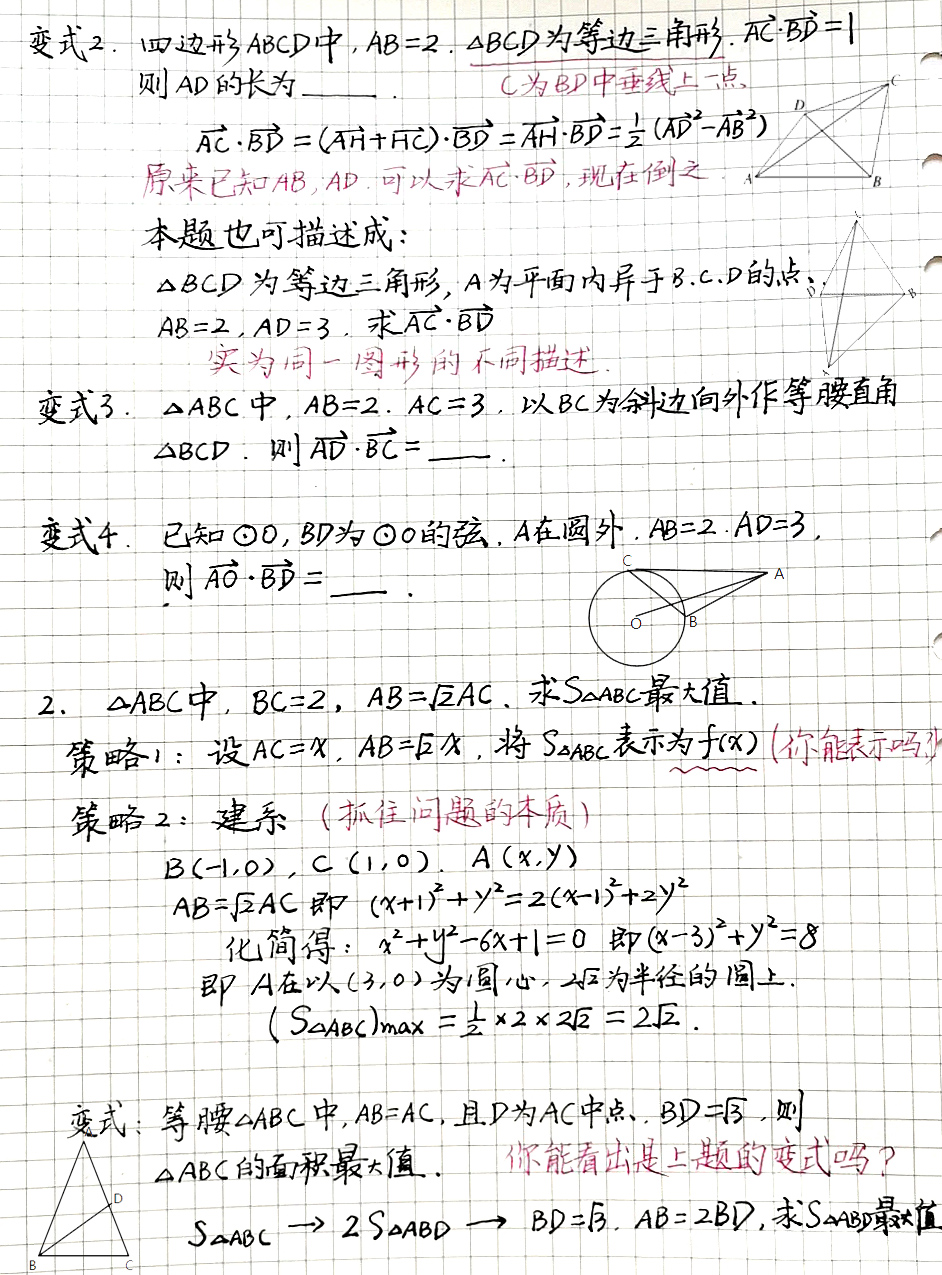 变式2. 四边形ABCD中, AB=2. △BCD为等边三角形. $\overrightarrow{AC}\cdot\overrightarrow{BD}=1$
则AD的长为______. C为BD中垂线上一点
$\overrightarrow{AC}\cdot\overrightarrow{BD}=(\overrightarrow{AH}+\overrightarrow{HC})\cdot\overrightarrow{BD}=\overrightarrow{AH}\cdot\overrightarrow{BD}=\frac{1}{2}(\overrightarrow{AD}^2-\overrightarrow{AB}^2)$
D C A B
原来已知AB, AD. 可以求$\overrightarrow{AC}\cdot\overrightarrow{BD}$, 现在倒之
本题也可描述成:
△BCD为等边三角形, A为平面内异于B.C.D的点,
D B
AB=2, AD=3. 求$\overrightarrow{AC}\cdot\overrightarrow{BD}$
实为同一图形的不同描述.
变式3. △ABC中, AB=2. AC=3. 以BC为斜边向外作等腰直角
△BCD. 则$\overrightarrow{AD}\cdot\overrightarrow{BC}$=____.
变式4. 已知⊙O, BD为⊙O的弦. A在圆外. AB=2. AD=3,
则$\overrightarrow{AO}\cdot\overrightarrow{BD}$=____.
C A
O B
2. △ABC中, BC=2, AB=√2AC. 求S△ABC最大值.
策略1: 设AC=x, AB=√2x, 将S△ABC表示为f(x) (你能表示吗?)
策略2: 建系 (抓住问题的本质)
B(-1,0), C(1,0). A(x,y)
AB=√2AC 即 (x+1)²+y²=2(x-1)²+2y²
化简得: x²+y²-6x+1=0 即(x-3)²+y²=8
即 A在以(3,0)为圆心, 2√2为半径的圆上.
(S△ABC)max = ½×2×2√2 = 2√2.
变式: 等腰△ABC中, AB=AC, 且D为AC中点, BD=√3, 则
△ABC的面积最大值. 你能看出是上题的变式吗?
S△ABC → 2S△ABD → BD=√3. AB=2BD, 求S△ABD最大值
D
B C